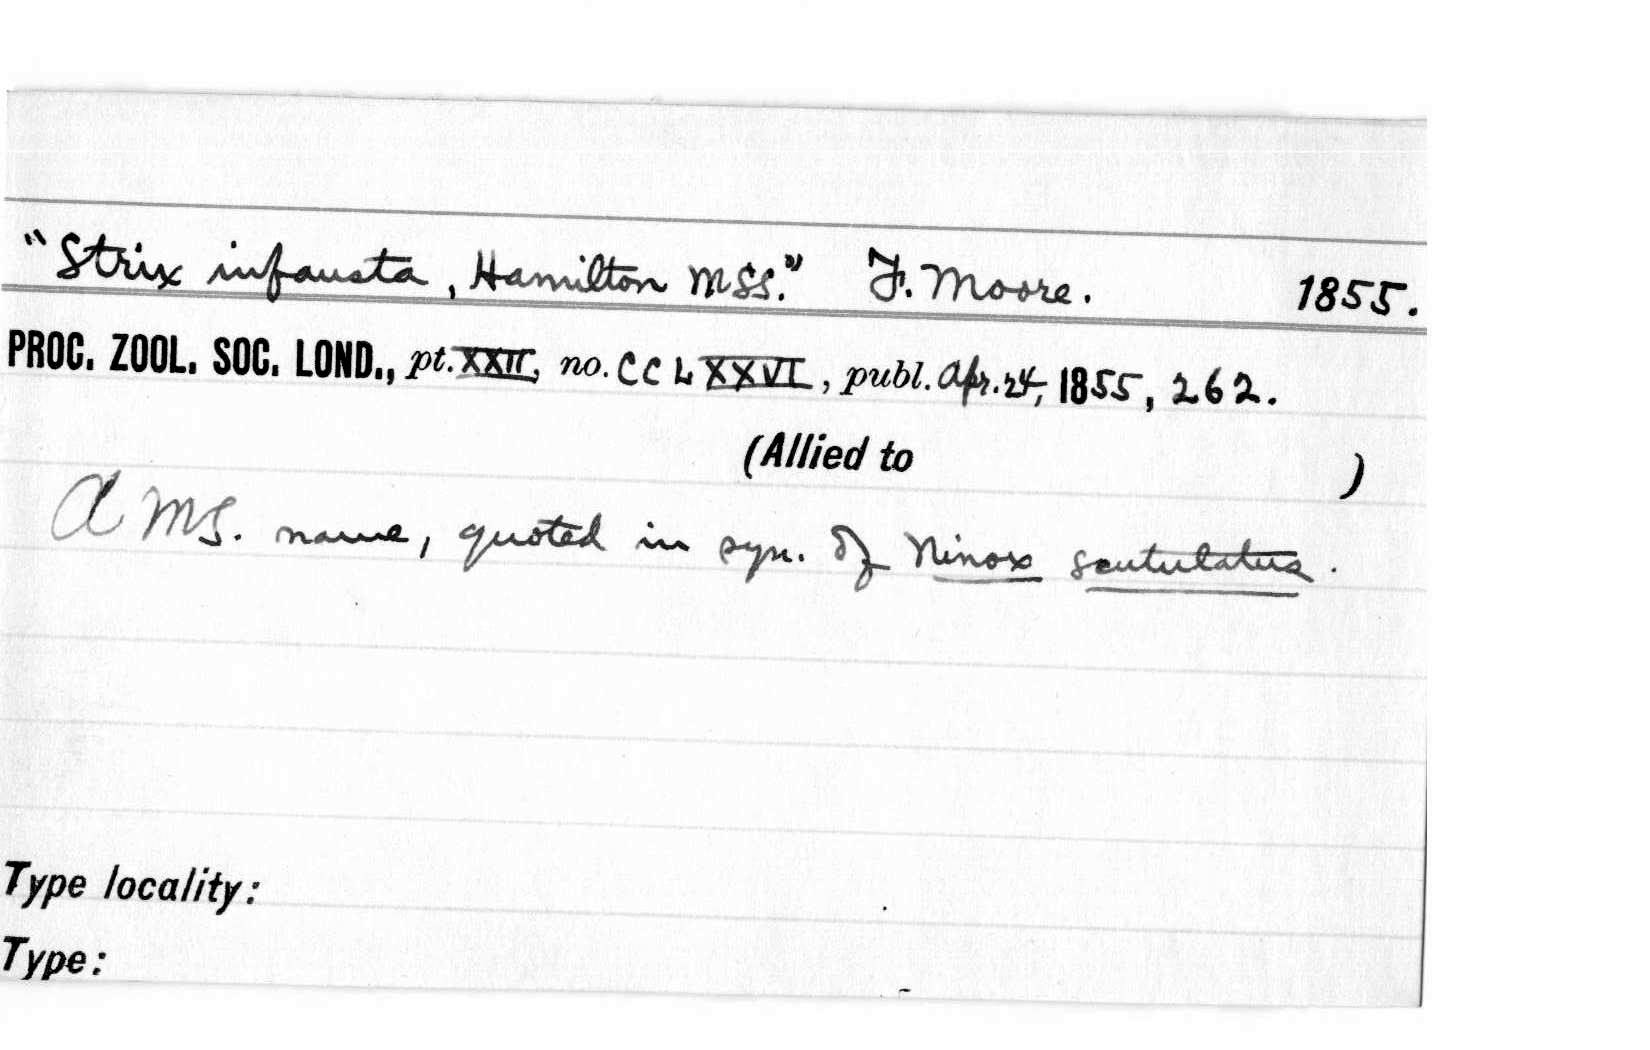 "Strix infausta, Hamilton MSS." F. Moore. 1855.
PROC. ZOOL. SOC. LOND., pt. XXII, no. CCLXXVI, publ. Apr. 24, 1855, 262.
(Allied to )
A MS. name, quoted in syn. of Ninox scutulatus.
Type locality:
Type: